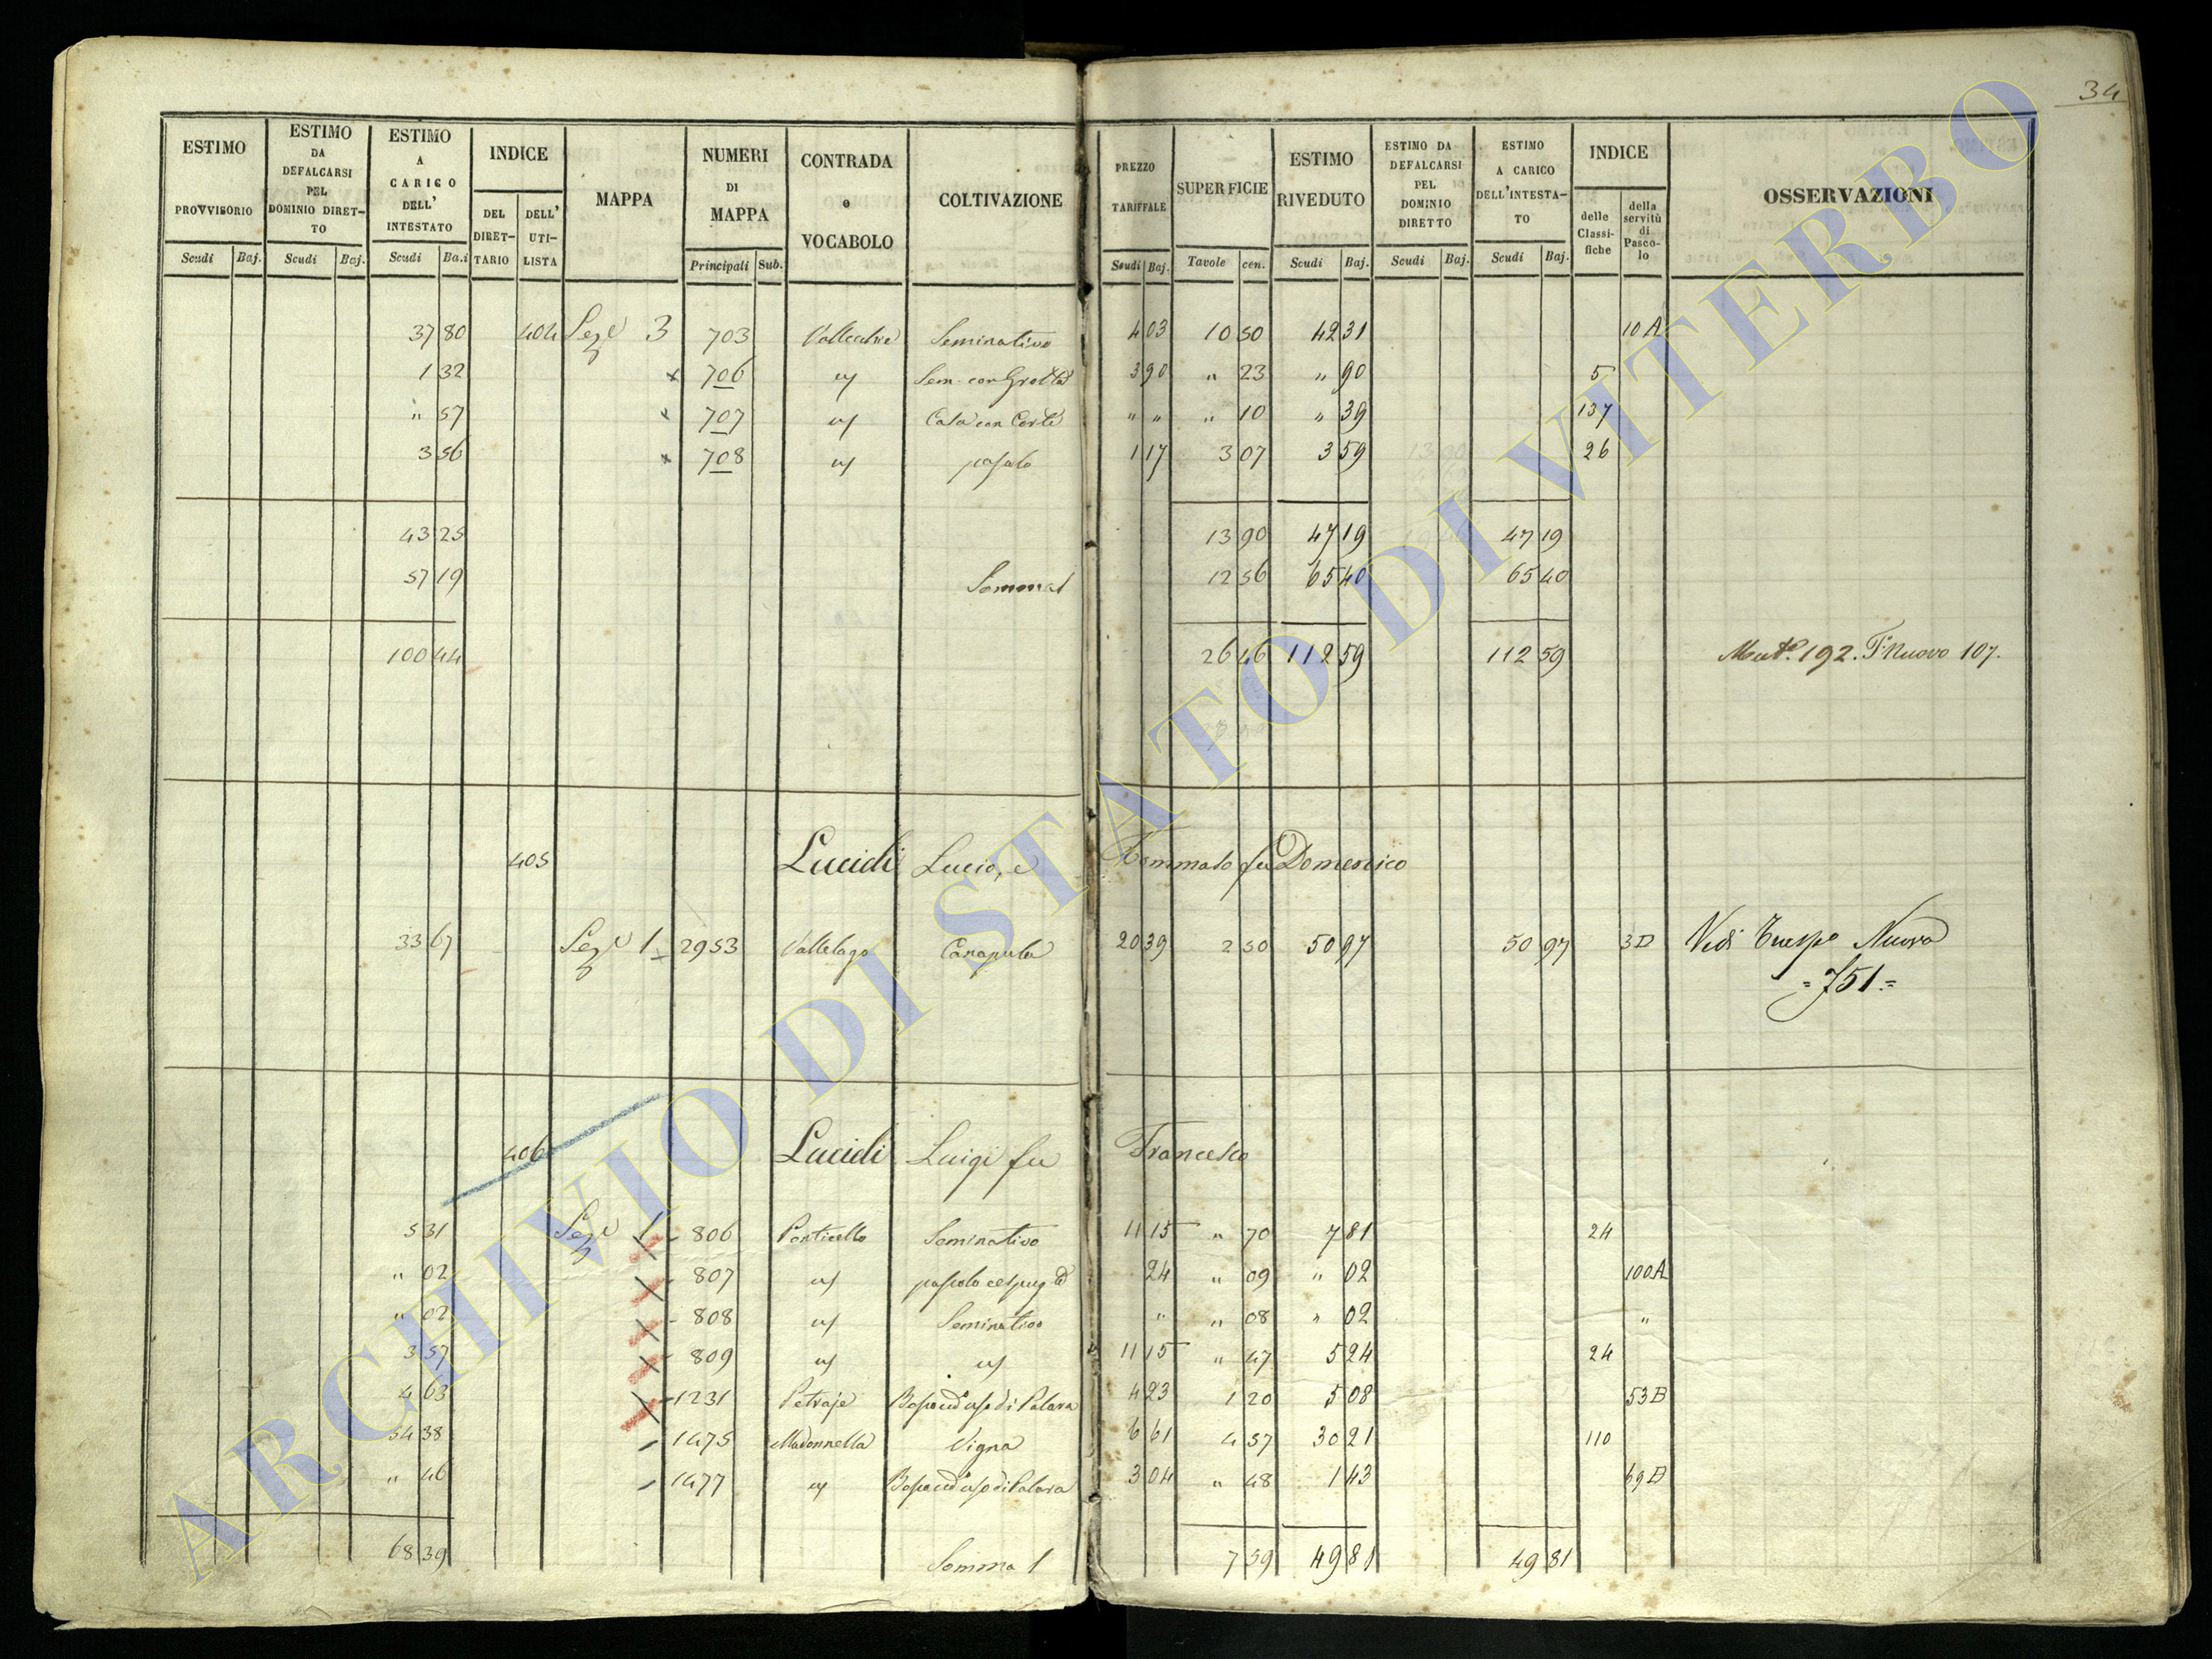 34
ESTIMO PROVVISORIO | ESTIMO DA DEFALCARSI PEL DOMINIO DIRET-TO | ESTIMO A CARICO DELL' INTESTATO | INDICE | MAPPA | NUMERI DI MAPPA | CONTRADA o VOCABOLO | COLTIVAZIONE | PREZZO TARIFFALE | SUPERFICIE | ESTIMO RIVEDUTO | ESTIMO DA DEFALCARSI PEL DOMINIO DIRETTO | ESTIMO A CARICO DELL'INTESTA-TO | INDICE | OSSERVAZIONI
DEL DIRET-TARIO | DELL' UTI-LISTA | delle Classi-fiche | della servitù di Pasco-lo
Scudi | Baj. | Scudi | Baj. | Scudi | Ba.i | Principali | Sub. | Scudi | Baj. | Tavole | cen. | Scudi | Baj. | Scudi | Baj. | Scudi | Baj.
37 80 404 Sez.e 3 703 Seminativo 4 03 10 50 42 31 10 A
1 32 x 706 " Sem. con Grotta 3 90 " 23 " 90 5
" 57 x 707 " Casa con Corte " " " 10 " 39 137
3 56 x 708 " pascolo 1 17 3 07 3 59 26
43 25 13 90 47 19 47 19
57 19 Somma 12 56 65 40 65 40
100 44 26 46 112 59 112 59 Mut.e 192. F.o Nuovo 107.
405 Lucidi Lucio, e Tommaso fu Domenico
33 67 Sez.e 1 x 2953 Vallelago Canapule 20 39 2 50 50 97 50 97 3 D Vedi Nuova
= 751 =
406 Lucidi Luigi fu Francesco
5 31 Sez.e 1 x 806 Ponticello Seminativo 11 15 " 70 7 81 24
" 02 x 807 " pascolo cespug.to 24 " 09 " 02 100 A
" 02 x 808 " Seminativo " " 08 " 02 "
3 57 x 809 " " 11 15 " 47 5 24 24
4 63 x 1231 Petraje Bosco ad uso di Palara 4 23 1 20 5 08 53 B
54 38 1475 Madonnella Vigna 6 61 4 57 30 21 110
" 46 1477 " Bosco ad uso di Palara 3 04 " 48 1 43 69 D
68 39 Somma 7 59 49 81 49 81
ARCHIVIO DI STATO DI VITERBO